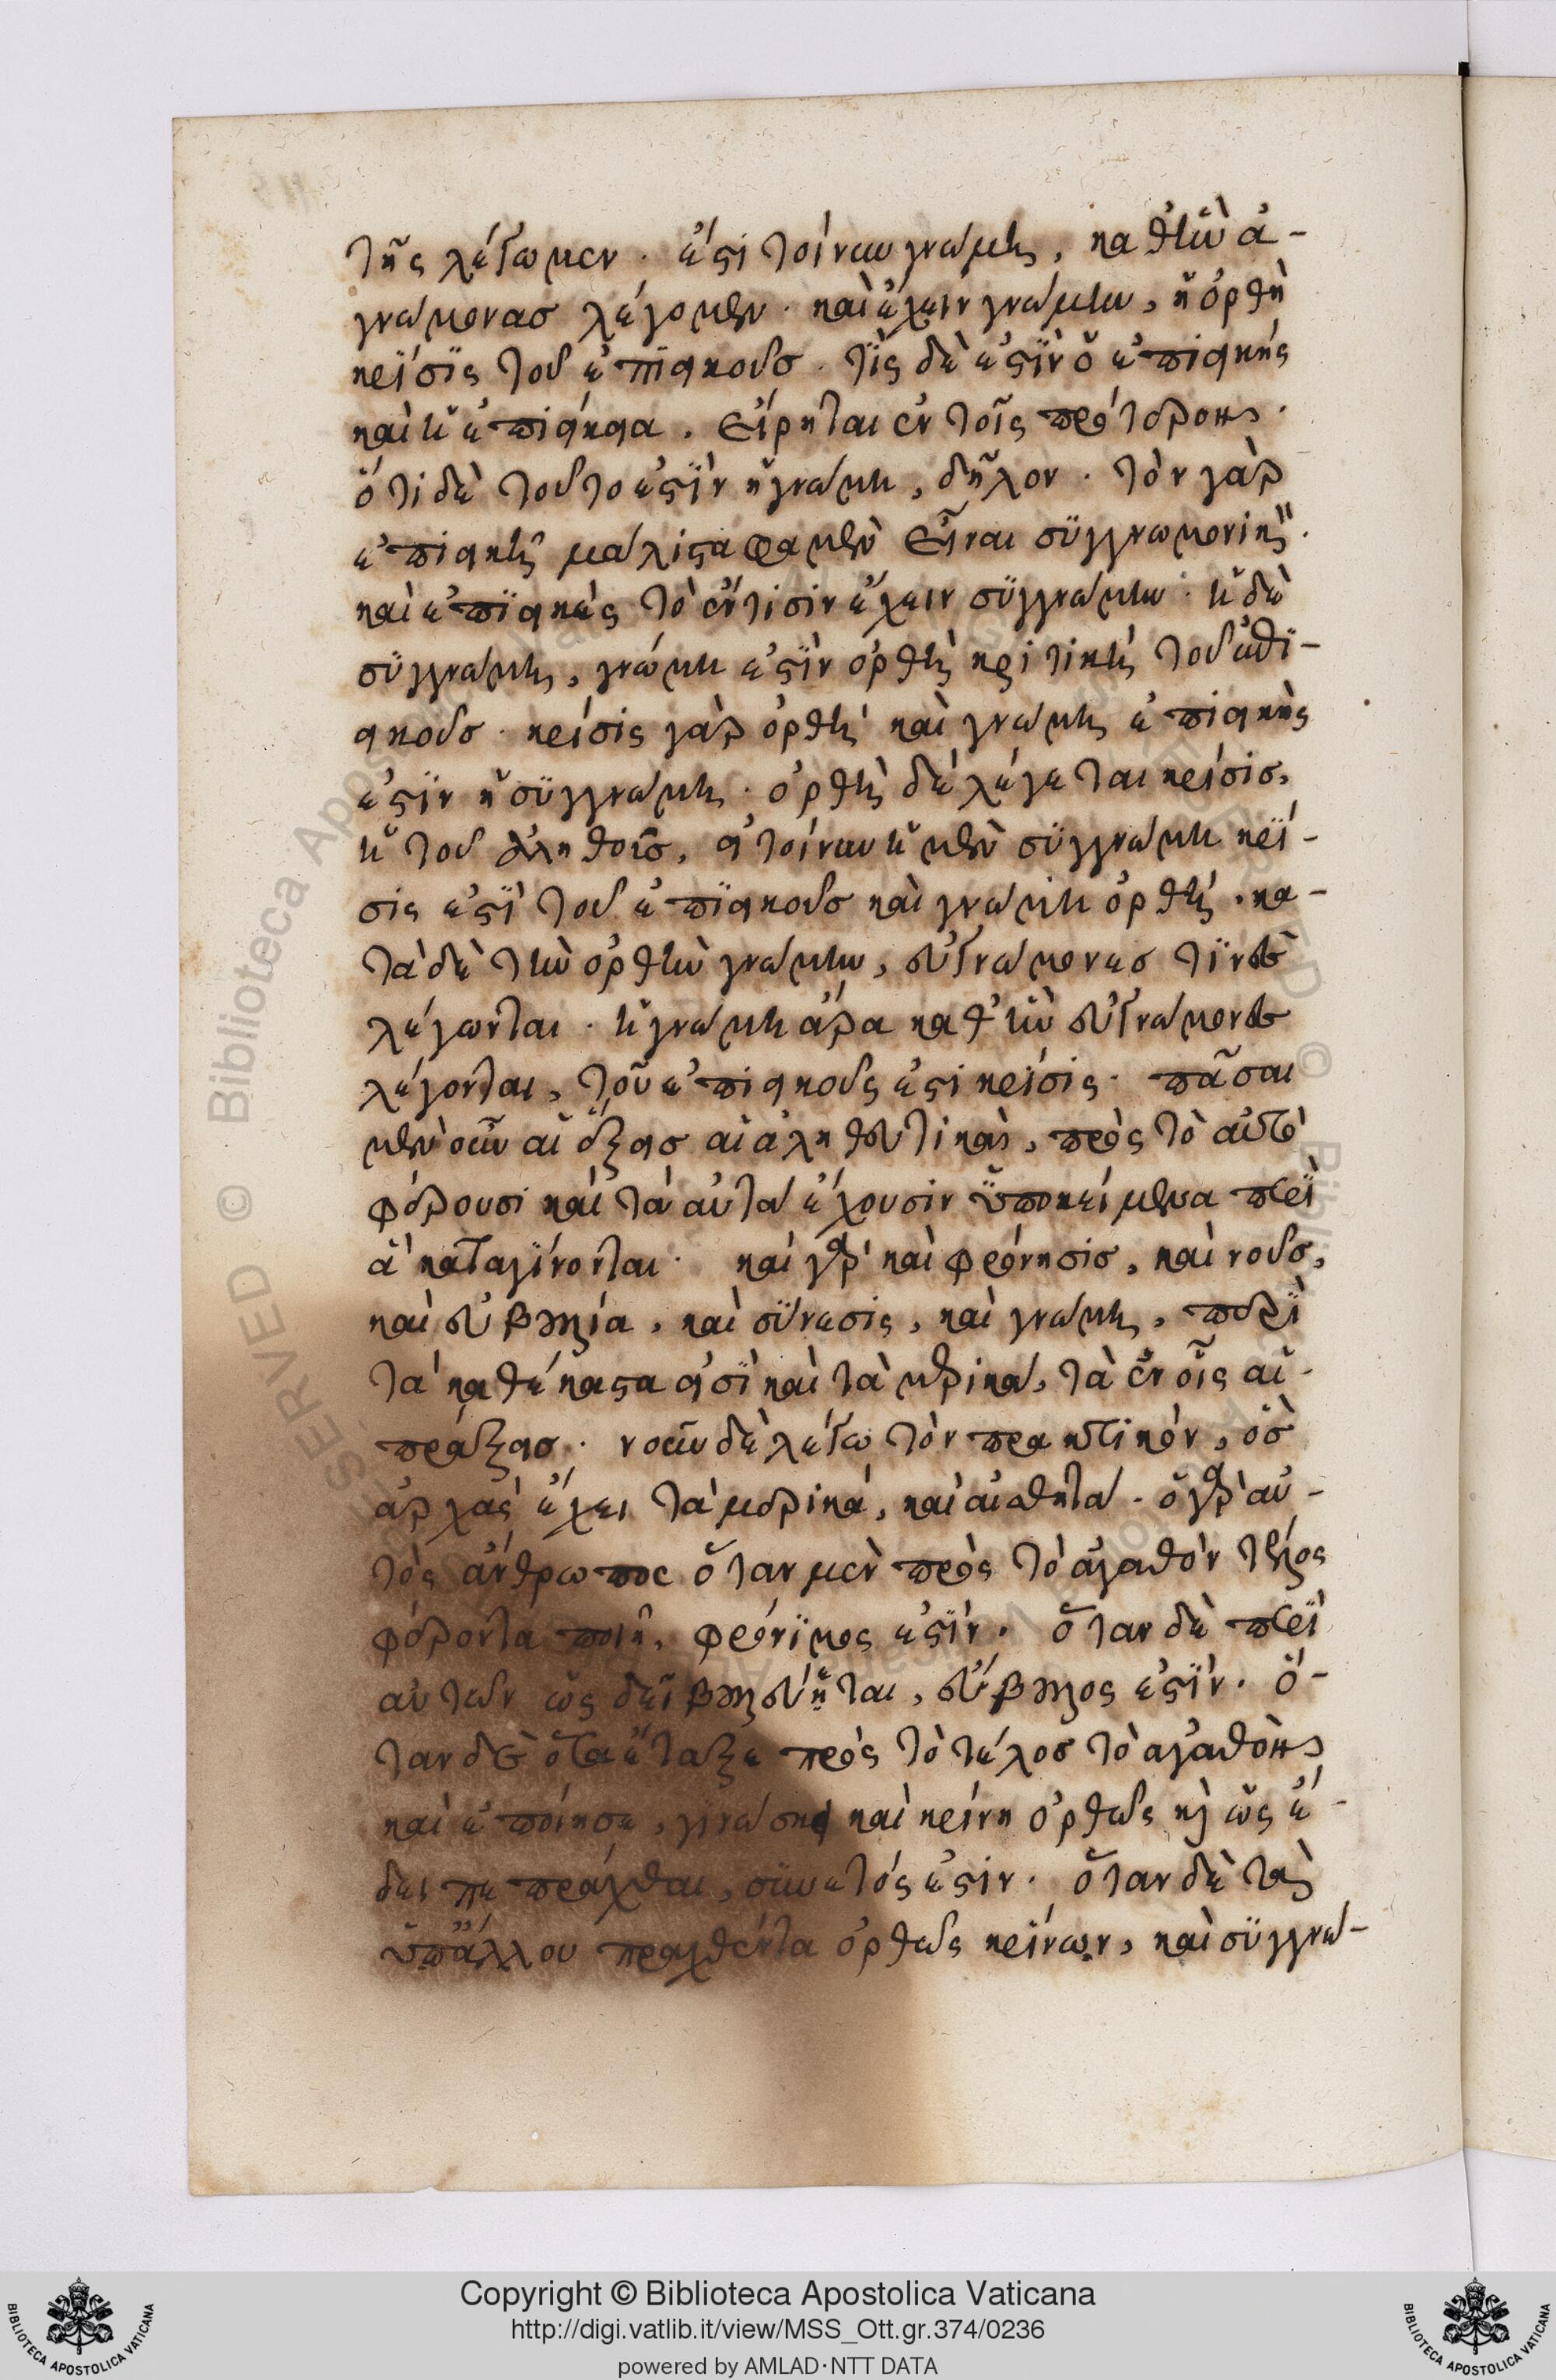 της λέγωμεν. ἔστι τοίνυν γνώμη, καθ' ἣν ἀ-
γνώμονας λέγομεν. καὶ ἔχειν γνώμην, ἡ ὀρθὴ
κρίσις τοῦ ἐπιεικοῦς. τίς δέ ἐστιν ὁ ἐπιεικής
καὶ ἡ ἐπιείκεια. εἴρηται ἐν τοῖς πρότερον.
ὅτι δὲ τοῦτο ἐστὶν ἡ γνώμη, δῆλον. τὸν γὰρ
ἐπιεικῆ μάλιστα φαμὲν εἶναι συγγνωμονικ.
καὶ ἐπιεικὲς τὸ ἔν τισιν ἔχειν συγγνώμην. ἡ δὲ
συγγνώμη, γνώμη ἐστὶν ὀρθὴ κριτικὴ τοῦ ἐπι-
εικοῦς. κρίσις γὰρ ὀρθὴ καὶ γνώμη ἐπιεικὴς
ἐστὶν ἡ συγγνώμη. ὀρθὴ δὲ λέγεται κρίσις,
ἡ τοῦ ἀληθοῦς, εἰ τοίνυν ἡ μὲν συγγνώμη κρί-
σις ἐστὶ τοῦ ἐπιεικοῦς καὶ γνώμη ὀρθή, κα-
τὰ δὲ τὴν ὀρθὴν γνώμην, εὐγνώμονες τινὲς
λέγωνται. ἡ γνώμη ἄρα καθ' ἣν εὐγνώμονες
λέγονται, τοῦ ἐπιεικοῦς ἐστι κρίσις. πᾶσαι
μὲν οὖν αἱ ἕξεις αἱ ἀληθευτικαὶ, πρὸς τὸ αὐτὸ
φέρουσι καὶ τὰ αὐτὰ ἔχουσιν ὑποκείμενα περὶ
ἃ καταγίνονται. καὶ γὰρ καὶ φρόνησις, καὶ νοῦς,
καὶ εὐβουλία, καὶ σύνεσις, καὶ γνώμη, περὶ
τὰ καθέκαστα εἰσὶ καὶ τὰ μερικά, τὰ ἐν οἷς αἱ
πράξεις. νοῦν δὲ λέγω τὸν πρακτικόν, ὃς
ἀρχὰς ἔχει τὰ μερικά, καὶ αἰσθητά. ὁ γὰρ αὐ-
τὸς ἄνθρωπος ὅταν μὲν πρὸς τὸ ἀγαθὸν τέλος
φέροντα ποιῆ, φρόνιμος ἐστίν. ὅταν δὲ περὶ
αὐτῶν ὡς δεῖ βουλεύηται, εὔβουλος ἐστίν. ὅ-
ταν δὲ ὅσα ἔταξε πρὸς τὸ τέλος τὸ ἀγαθὸν
καὶ ἐποίησε, γινώσκει καὶ κρίνη ὀρθῶς καὶ ὡς ἔ-
δει πεπράχθαι, συνετός ἐστιν. ὅταν δὲ τὰ
ὑπ' ἄλλου πραχθέντα ὀρθῶς κρίνων, καὶ συγγνώ-